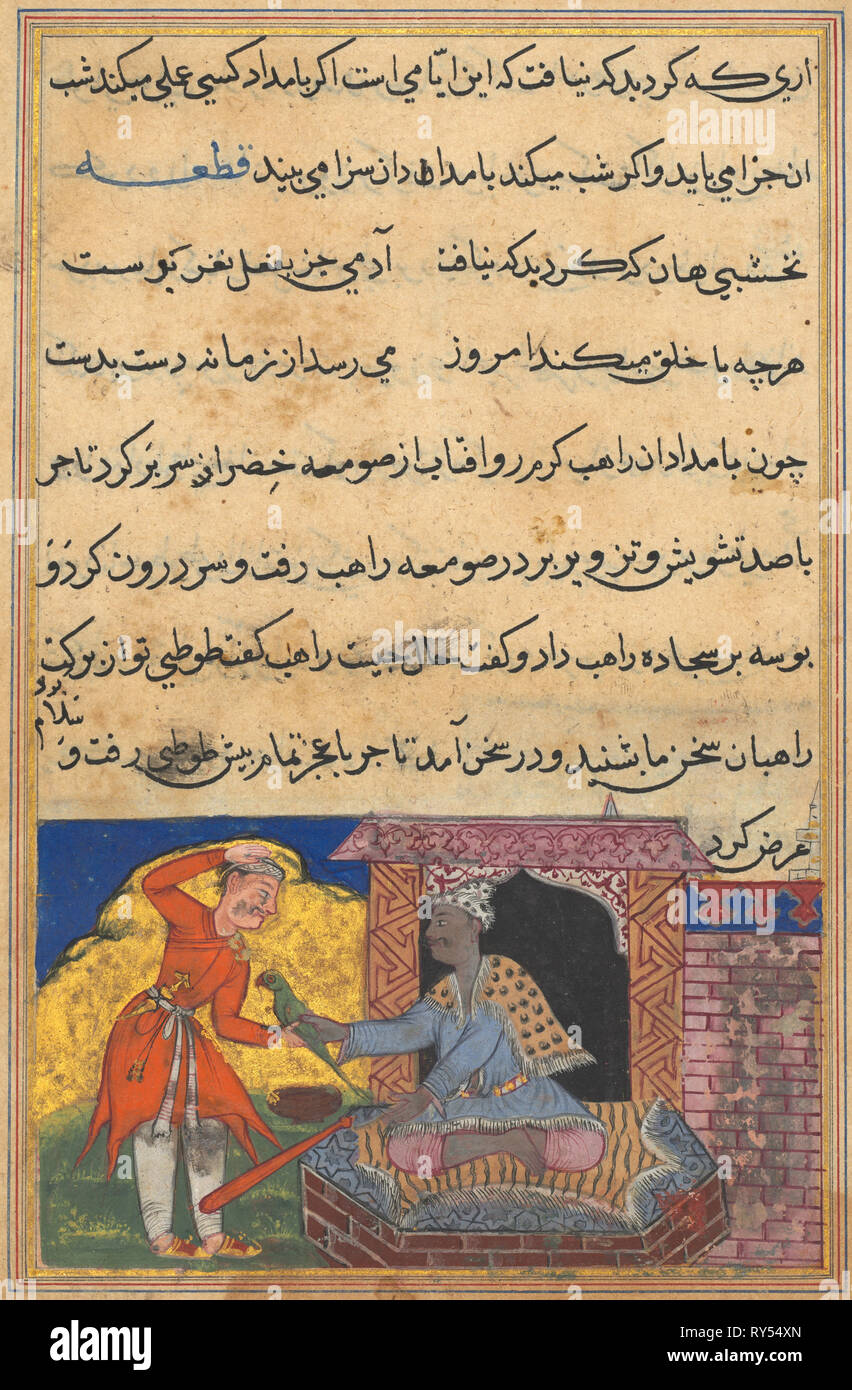 اری که کرد بد که نیافت که این ایّامی است اکر بامداد کسی عملی میکند شب
ان جزا می یابد و اکر شب میکند بامدادان سزا می بیند قطعه
نخشبی هان که کرد بد که نیافت آدمی جز بفعل نغز نوست
هرچه با خلق میکند امروز می رسد از زمانه دست بدست
چون بامدادان راهب کرم رو افتاب از صومعه خضرا سر بر کرد تاجر
با صد تشویش و تزویر بر در صومعه راهب رفت و سر درون کرد و
بوسه بر سجاده راهب داد و کفت حال چیست راهب کفت طوطی تو از برکت
راهبان سخن ما بشنید و در سخن آمد تاجر با عجز تمام پیش طوطی رفت و
سلام
عرض کرد
alamy
alamy
Image ID: RY54XN
www.alamy.com